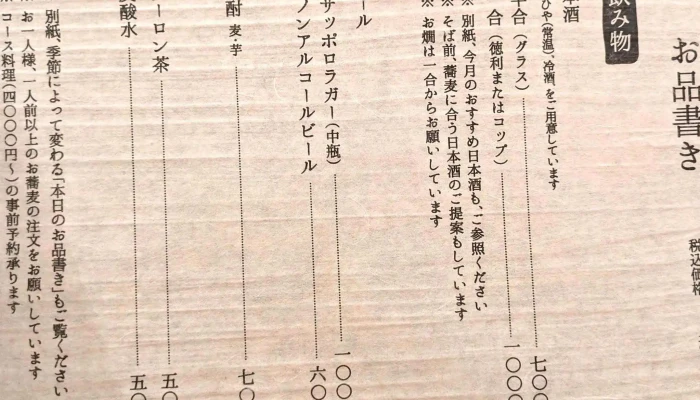 お品書き
税込価格
飲み物
本酒
ひや(常温)、冷酒、をご用意しています
半合(グラス) 七〇〇
合(徳利またはコップ) 一〇〇〇
※ 別紙、今月のおすすめ日本酒も、ご参照ください
※ そば前、蕎麦に合う日本酒のご提案もしています
※ お燗は一合からお願いしています
ール
サッポロラガー(中瓶) 一〇〇
ノンアルコールビール 六〇
酎 麦・芋 七〇
ーロン茶 五〇
酸水 五〇
別紙、季節によって変わる「本日のお品書き」もご覧ください
お一人様、一人前以上のお蕎麦の注文をお願いしています
コース料理(四〇〇〇円〜)の事前予約承ります